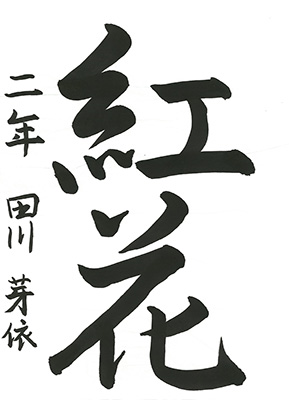 紅花
二年 田川 芽依